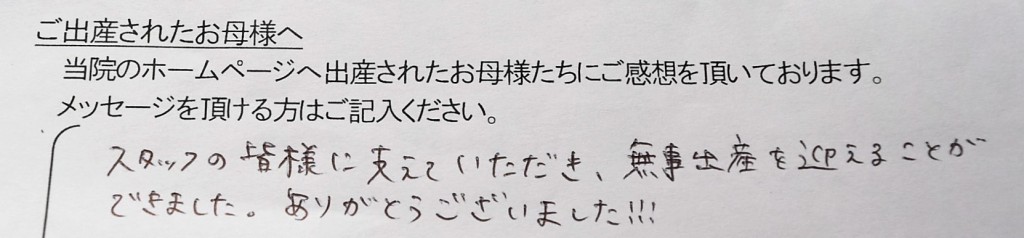 ご出産されたお母様へ
当院のホームページへ出産されたお母様たちにご感想を頂いております。
メッセージを頂ける方はご記入ください。
スタッフの皆様に支えていただき、無事出産を迎えることが
できました。ありがとうございました!!!